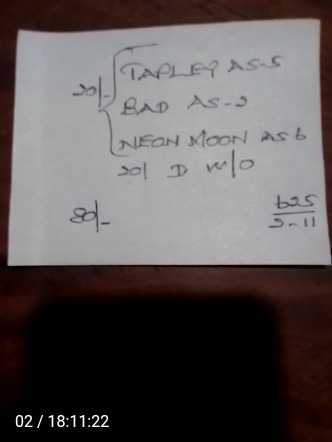 20/- TAPLEY AS-5
BAD AS-2
NEON MOON AS 6
20/ D W/O
80/-
625
2-11
02 / 18:11:22